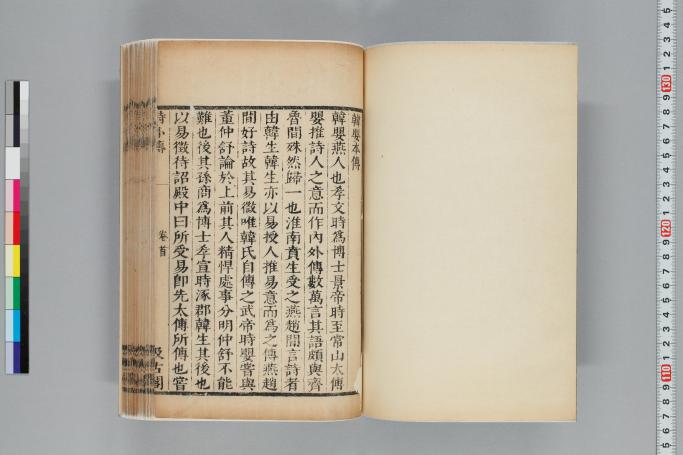 韓嬰本傳
韓嬰燕人也孝文時為博士景帝時至常山太傅
嬰推詩人之意而作內外傳數萬言其語頗與齊
魯間殊然歸一也淮南賁生受之燕趙間言詩者
由韓生韓生亦以易授人推易意而為之傳燕趙
間好詩故其易微唯韓氏自傳之武帝時嬰嘗與
董仲舒論於上前其人精悍處事分明仲舒不能
難也後其孫商為博士孝宣時涿郡韓生其後也
以易徵待詔殿中曰所受易卽先太傅所傳也嘗
詩外傳
卷首
汲古閣